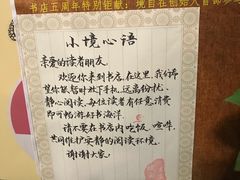 书店五周年特别钜献：境自在创始人首部
小境心语
亲爱的读者朋友，
欢迎你来到书店，在这里，我们希
望你能暂时放下手机，远离纷扰、
静心阅读，每位读者有任意消费
即可畅游好书海洋。
请不要在书店内吃饭、喧哗，
共同维护安静的阅读环境。
谢谢大家！